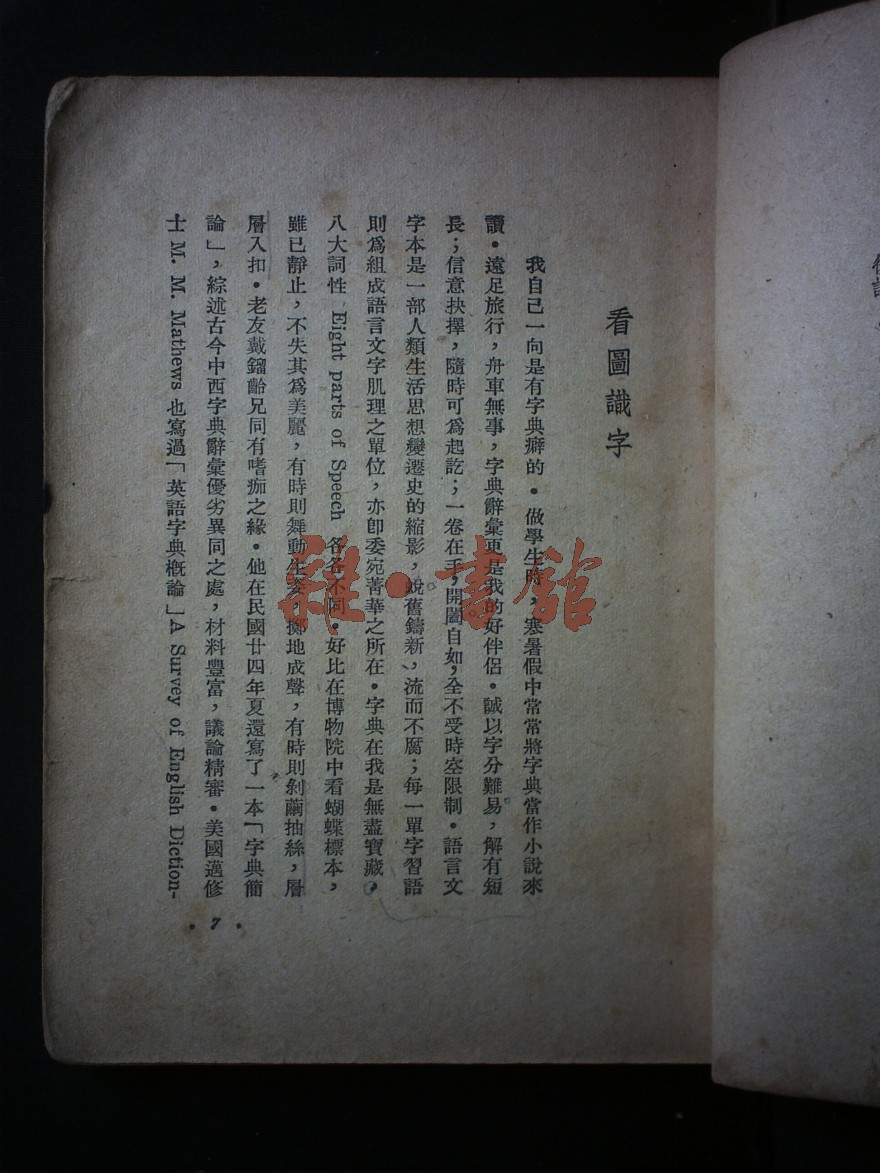 看圖識字
我自己一向是有字典癖的。做學生時，寒暑假中常常將字典當作小說來
讀。遠足旅行，舟車無事，字典辭彙更是我的好伴侶。誠以字分難易，解有短
長；信意抉擇，隨時可爲起訖；一卷在手，開闔自如，全不受時空限制。語言文
字本是一部人類生活思想變遷史的縮影，說舊鑄新，流而不腐；每一單字習語
則爲組成語言文字肌理之單位，亦卽委宛菁華之所在。字典在我是無盡寶藏，
八大詞性 Eight parts of Speech 各各不同。好比在博物院中看蝴蝶標本，
雖已靜止，不失其爲美麗，有時則舞動生姿，擲地成聲，有時則剝繭抽絲，層
層入扣。老友戴鎦齡兄同有嗜痂之緣。他在民國廿四年夏還寫了一本「字典簡
論」，綜述古今中西字典辭彙優劣異同之處，材料豐富，議論精審。美國邁修
士 M. M. Mathews 也寫過「英語字典槪論」A Survey of English Diction-
· 7 ·
雜·書館